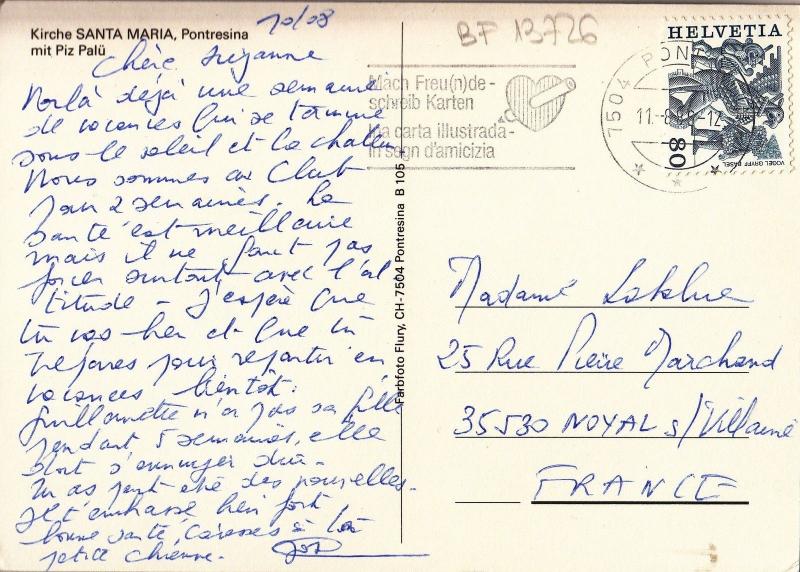 Kirche SANTA MARIA, Pontresina
mit Piz Palü
10/08
Chère Suzanne
Voilà déjà une semaine
de vacances qui se termine
sous le soleil et la chaleur
Nous sommes au Club
pour 2 semaines. La
santé est meilleure
mais il ne faut pas
forcer surtout avec l'al
titude - J'espère que
tu vas bien et que tu
prépares pour repartir en
vacances bientôt.
Guillemette n'a pas sa fille
pendant 5 semaines, elle
doit s'ennuyer
Tu as peut être des nouvelles.
Je t'embrasse bien fort
bonne santé, caresses à ta
petite chienne.
Farbfoto Flury, CH-7504 Pontresina B 105
BF 13726
Mach Freu(n)de-
schreib Karten
Una carta illustrada-
in segn d'amicizia
7504 PONT
11.-8. -12
HELVETIA
80
VOGEL GRYFF BASEL
Madame
25 Rue Pierre Marchand
35530 NOYAL s/Vilaine
FRANCE